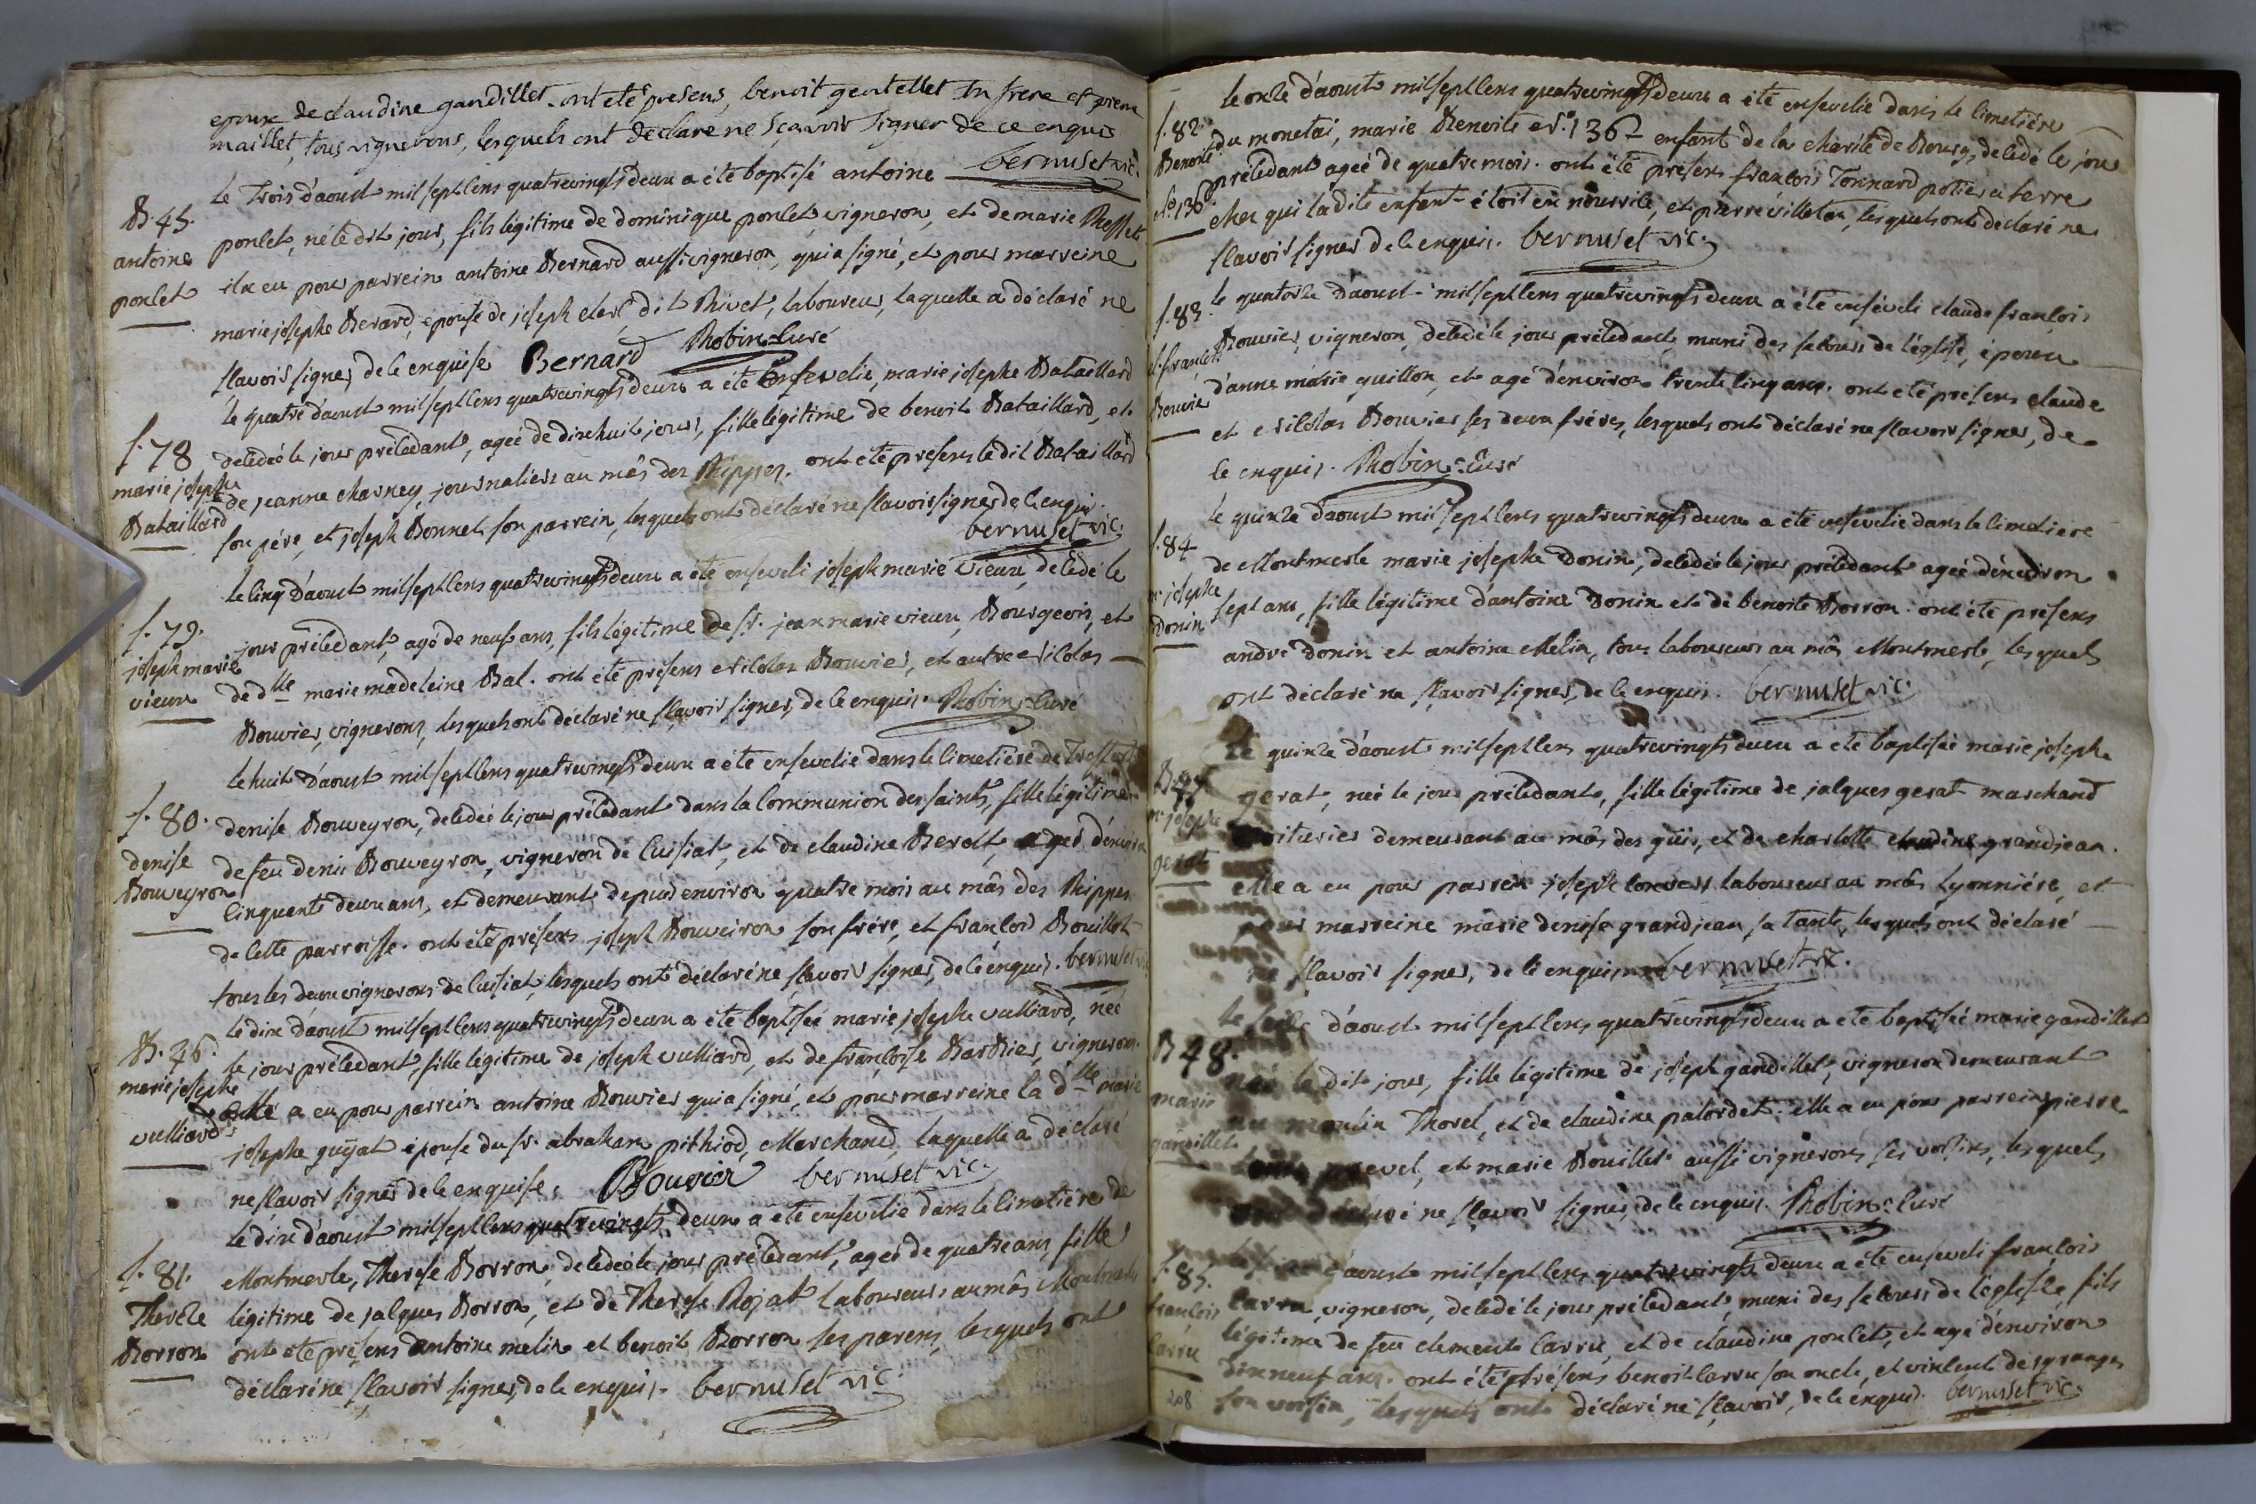 epoux de claudine gandillet. ont été presens, benoit gentellet son frere et pierre
maillet, tous vignerons, lesquels ont déclaré ne sçavoir signer de ce enquis
bernuset vic.
B. 45.
antoine
poncet
le trois d'aoust mil sept cens quatrevingts deux a été baptisé antoine
poncet, né ledit jour, fils légitime de dominique poncet, vigneron, et de marie
il a eu pour parrein antoine Bernard aussi vigneron, qui a signé, et pour marreine
marie josephe Berard, epouse de joseph clerc dit Rivet, laboureur, laquelle a déclaré ne
sçavoir signer de ce enquise Bernard Robin curé
s. 78
marie josephe
Bataillard
le quatre d'aoust mil sept cens quatrevingts deux a été ensevelie, marie josephe Bataillard
decedée le jour précédant, ageé de dix huit jours, fille légitime de benoit Bataillard, et
de jeanne charney, journaliers au mâs des Rippes. ont été presens ledit Bataillard
son pére, et joseph Bonnet son parrein, lesquels ont déclaré ne sçavoir signer de ce enquis.
bernuset vic.
s. 79.
joseph marie
vieux
le cinq d'aoust mil sept cens quatrevingts deux a été enseveli joseph marie vieux, decedé le
jour précédant, agé de neuf ans, fils légitime de sr. jean marie vieux, Bourgeois, et
de dlle marie madeleine Bal. ont été présens Nicolas Bouvier, et autre Nicolas
Bouvier, vignerons, lesquels ont déclaré ne sçavoir signer, de ce enquis. Robin curé
s. 80.
denise
Bouveyron
le huit d'aoust mil sept cens quatrevingts deux a été ensevelie dans le cimetière de Treffort
denise Bouveyron, decedée le jour précédant dans la Communion des saints, fille légitime
de feu denis Bouveyron, vigneron de Cuisiat, et de claudine Berolt, ageé d'environ
cinquante deux ans, et demeurant depuis environ quatre mois au mâs des Rippes
de cette parroisse. ont été présens joseph Bouveiron son frére, et françois Bouillot
tous les deux vignerons de Cuisiat, lesquels ont déclaré ne sçavoir signer, de ce enquis. bernuset vic.
B. 46.
marie josephe
vulliard
le dix d'aoust mil sept cens quatrevingts deux a été baptisée marie josephe vulliard, née
le jour précédant, fille légitime de joseph vulliard, et de françoise Barbier, vignerons.
elle a eu pour parrein antoine Bouvier qui a signé, et pour marreine la dlle marie
josephe guyat épouse du sr. abraham pithiod, Marchand, laquelle a déclaré
ne sçavoir signer de ce enquise. Bouvier bernuset vic.
s. 81.
Thereze
Borron
le dix d'aoust mil sept cens quatrevingts deux a été ensevelie dans le cimetière de
Montmerle, Therese Borron, decedée le jour précédant, ageé de quatre ans, fille
légitime de jacques Borron, et de Therese Rojat laboureurs au mâs Montmerle
ont été présens antoine melin et benoit Borron ses parens, lesquels ont
déclaré ne sçavoir signer, de ce enquis. bernuset vic.
s. 82.
Benoite
No. 136
le onze d'aoust mil sept cens quatrevingts deux a été ensevelie dans le cimetière
du monetai, marie Benoite No. 136 enfant de la charité de Bourg, decedé le jour
précédant ageé de quatre mois. ont été présens françois Tonnard potier en terre
chez qui ladite enfant étoit en nourrice, et pierre villeton, lesquels ont déclaré ne
sçavoir signer de ce enquis. bernuset vic.
s. 83.
c. françois
Bouvier
le quatorze d'aoust mil sept cens quatrevingts deux a été enséveli claude françois
Bouvier, vigneron, decedé le jour précédant, muni des secours de l'église, époux
d'anne marie guillon, et agé d'environ trente cinq ans. ont été présens claude
et Nicolas Bouvier ses deux fréres, lesquels ont déclaré ne sçavoir signer, de
ce enquis. Robin curé
s. 84
m. josephe
Donin
le quinze d'aoust mil sept cens quatrevingts deux a été ensevelie dans le cimetiere
de Montmerle marie josephe Donin, decedée le jour précédant ageé d'environ
sept ans, fille légitime d'antoine Donin et de benoite Borron. ont été présens
andré donin et antoine Melin, tous laboureurs au mâs Montmerle, lesquels
ont déclaré ne sçavoir signer, de ce enquis. bernuset vic.
B. 47
m. josephe
gerat
le quinze d'aoust mil sept cens quatrevingts deux a été baptisée marie josephe
gerat, née le jour précédant, fille légitime de jacques gerat marchand
voiturier demeurant au mâs des guis, et de charlotte claudine grandjean.
elle a eu pour parrein joseph laboureur au mâs Lyonniére, et
pour marreine marie denise grandjean, sa tante, lesquels ont déclaré
ne sçavoir signer, de ce enquis bernuset vic.
B 48.
marie
gandillet
le seize d'aoust mil sept cens quatrevingts deux a été baptisée marie gandillet
née le dit jour, fille légitime de joseph gandillet, vigneron demeurant
au moulin Thorel, et de claudine palordet. elle a eu pour parrein pierre
et marie Bouillet aussi vignerons ses voisins, lesquels
ont déclaré ne sçavoir signer, de ce enquis. Robin curé
s. 85.
françois
Carru
d'aoust mil sept cens quatrevingts deux a été enseveli françois
Carru, vigneron, decedé le jour précédant, muni des secours de l'église, fils
légitime de feu clement Carru, et de claudine poncet, et agé d'environ
dix neuf ans. ont été présens benoit Carru son oncle, et vincent desgranges
son voisin, lesquels ont déclaré ne sçavoir, de ce enquis. bernuset vic.
208